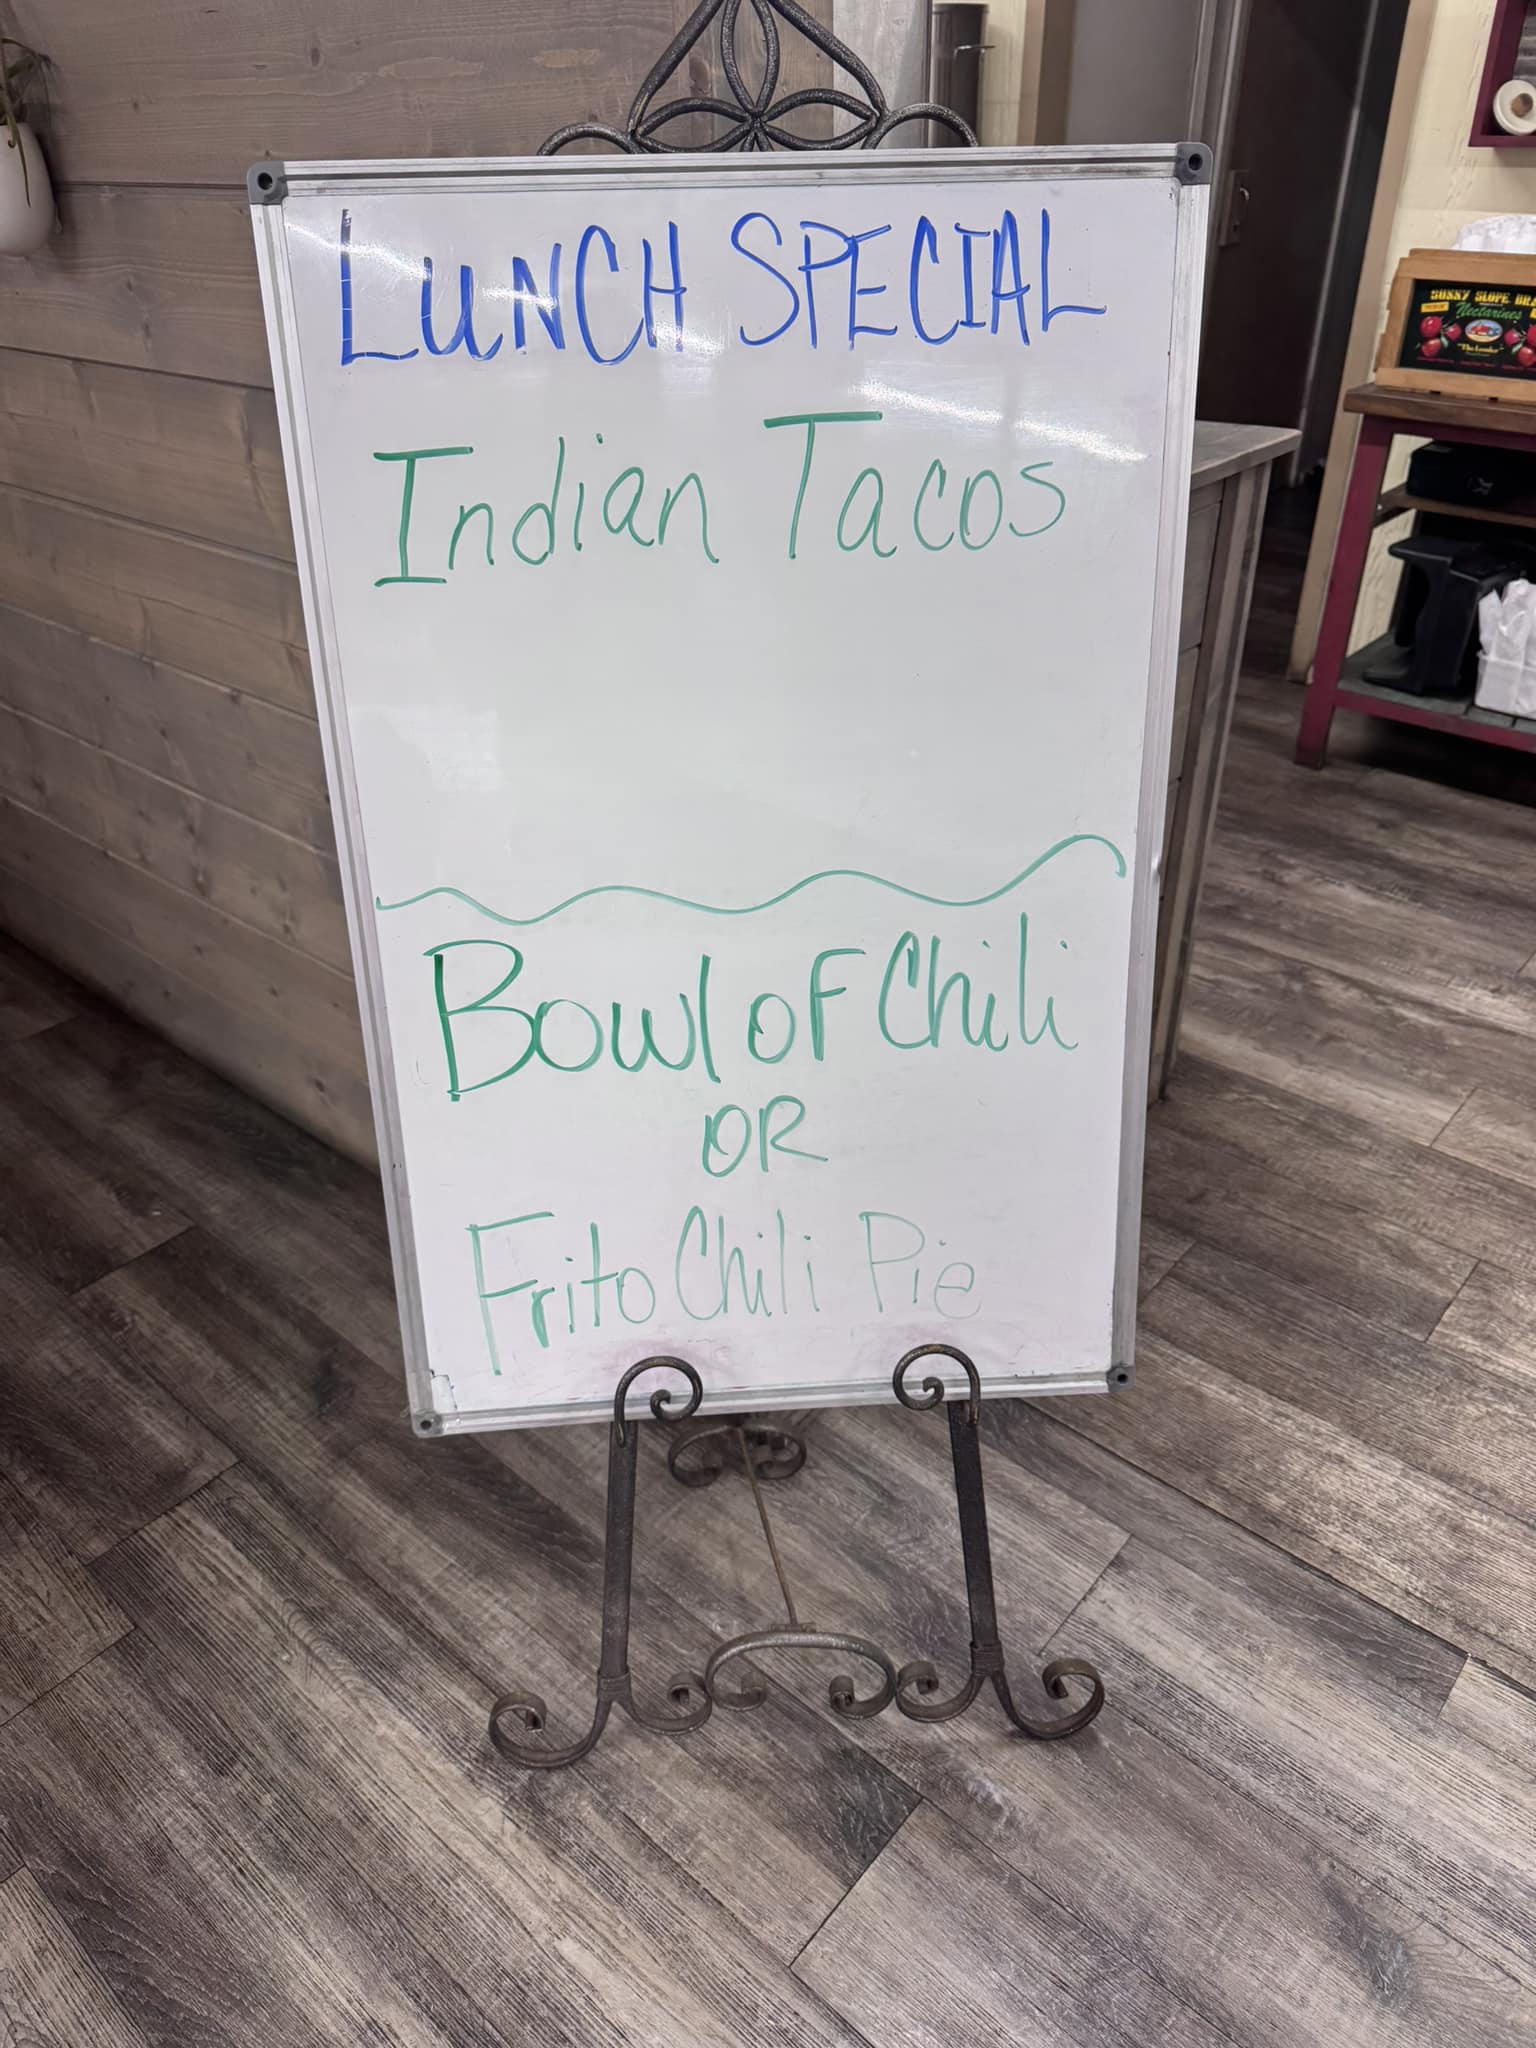 LUNCH SPECIAL
Indian Tacos
Bowl of Chili
OR
Frito Chili Pie
SUNNY SLOPE
Nectarines